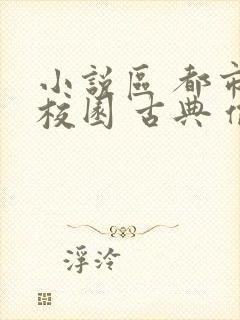 小說區 都市
校園 古典
浮泠